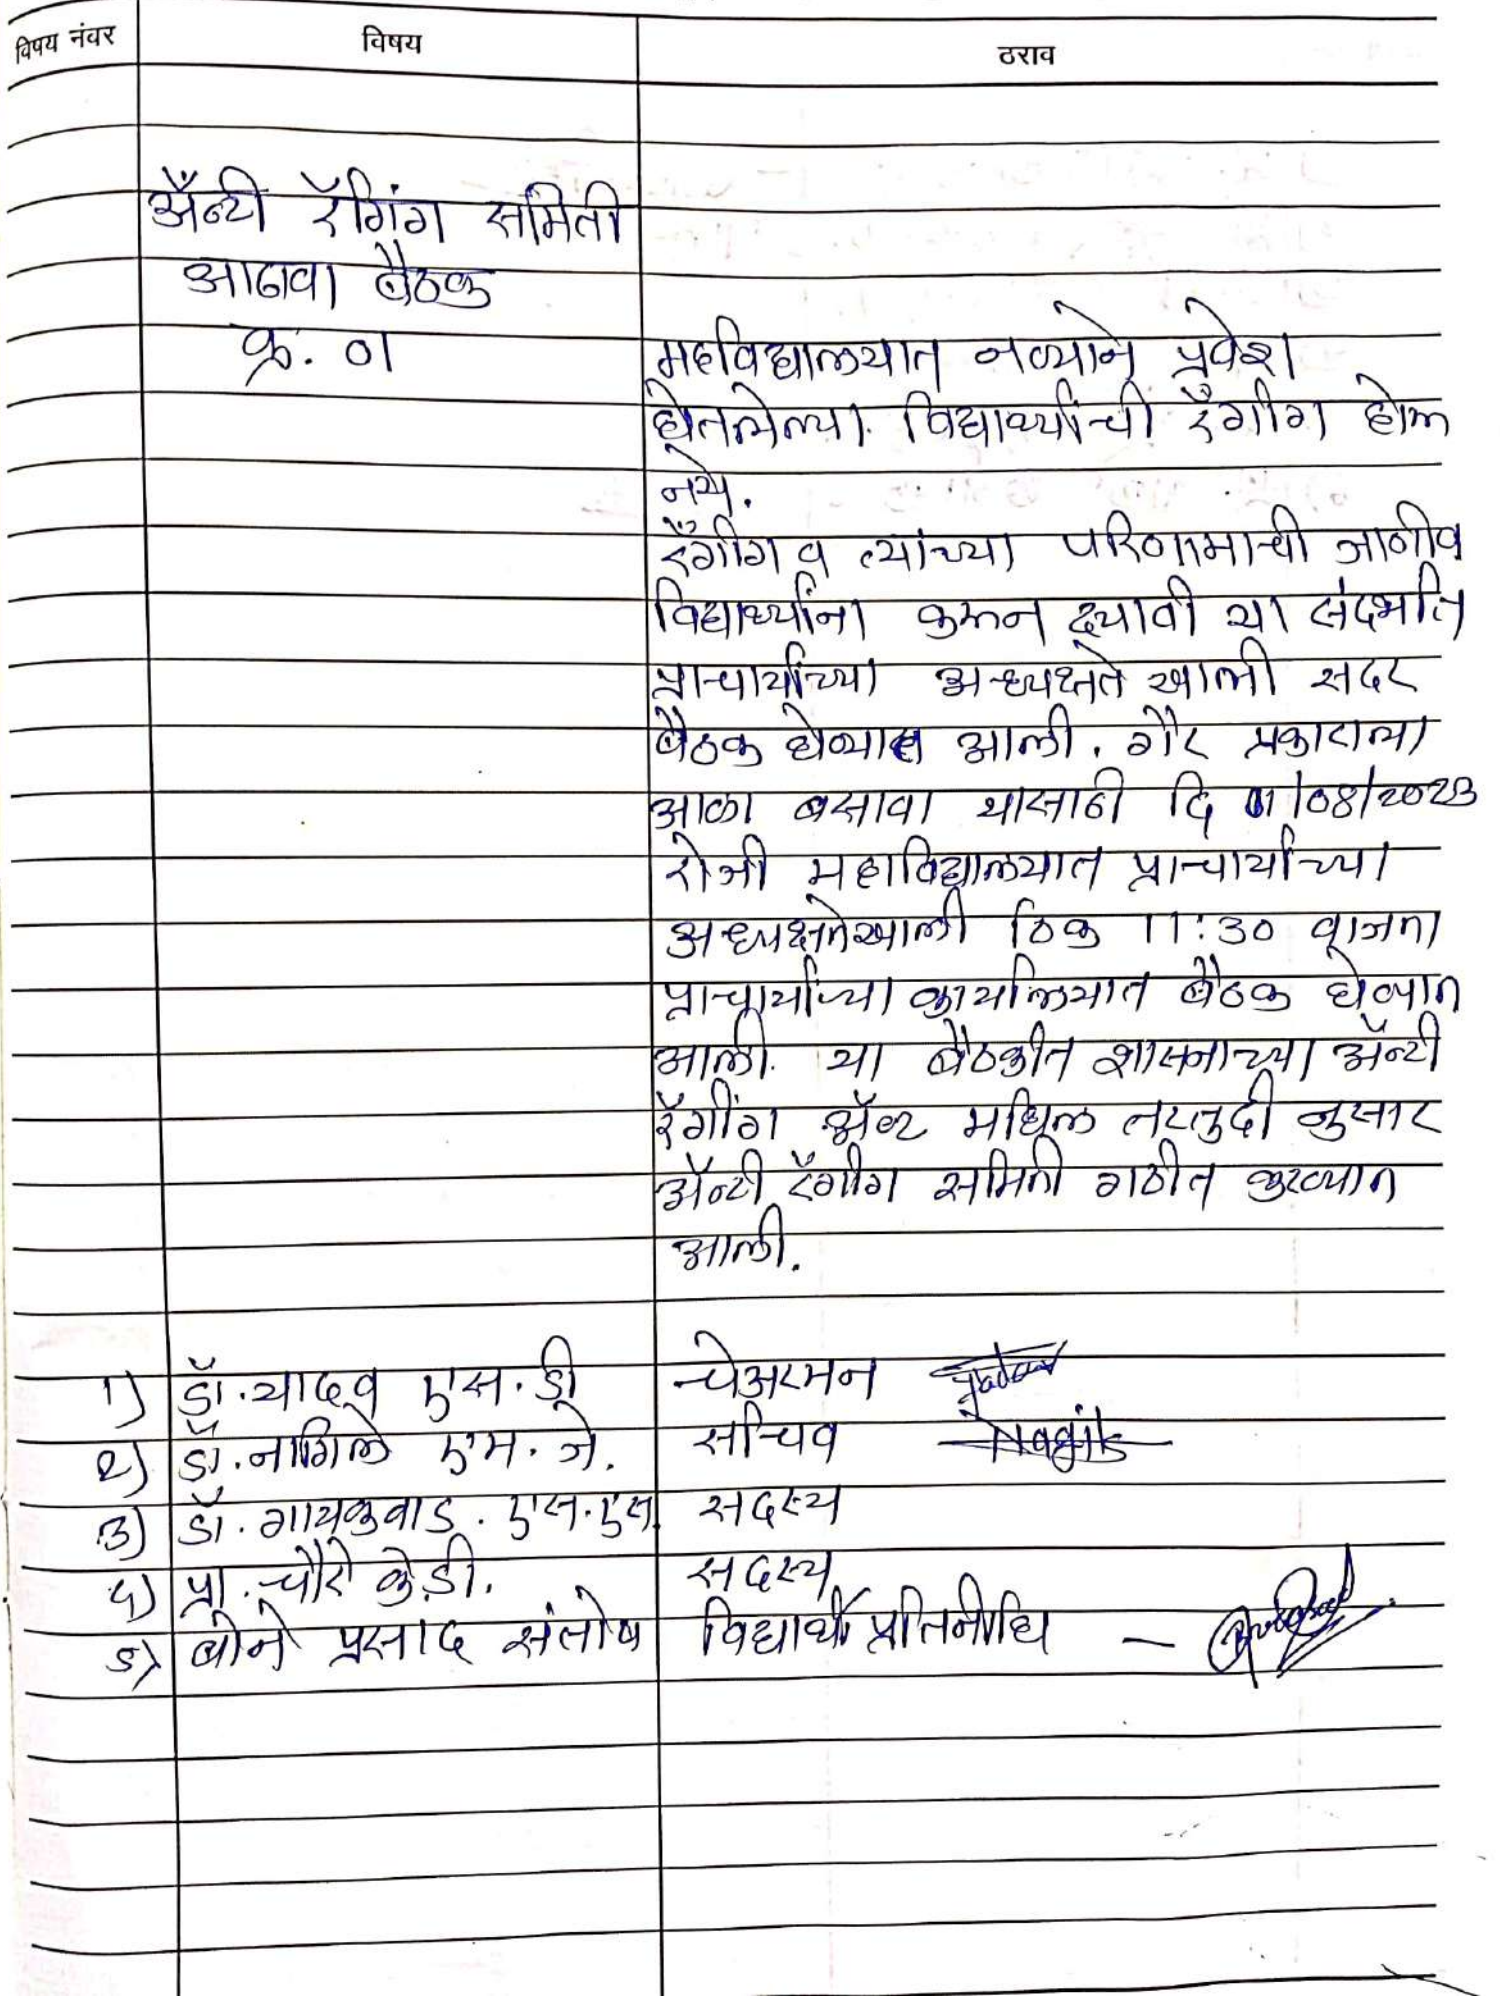 विषय नंबर विषय ठराव
अँन्टी रॅगिंग समिती
आढावा बैठक
क्र. 01 महविद्यालयात नव्याने प्रवेश
घेतलेल्या विद्यार्थ्यांची रॅगींग होऊ
नये.
रॅगींग व त्यांच्या परिणामाची जाणीव
विद्यार्थ्यांना करून द्यावी या संदर्भात
प्राचार्यांच्या अध्यक्षते खाली सदर
बैठक घेण्यात आली. गैर प्रकाराला
आळा बसावा यासाठी दि 01/08/2023
रोजी महाविद्यालयात प्राचार्यांच्या
अध्यक्षतेखाली ठिक 11:30 वाजता
प्राचार्यांच्या कार्यालयात बैठक घेण्यात
आली. या बैठकीत शासनाच्या अँन्टी
रॅगींग अॅक्ट मधिल तरतुदी नुसार
अँन्टी रॅगींग समिती गठीत करण्यात
आली.
1) डॉ. यादव एस. डी चेअरमन Yadav
2) डॉ. नागिले एम. जे. सचिव
3) डॉ. गायकवाड. एस. एस. सदस्य
4) प्रा. चौरे के.डी. सदस्य
5) बोने प्रसाद संतोष विद्यार्थी प्रतिनीधि —